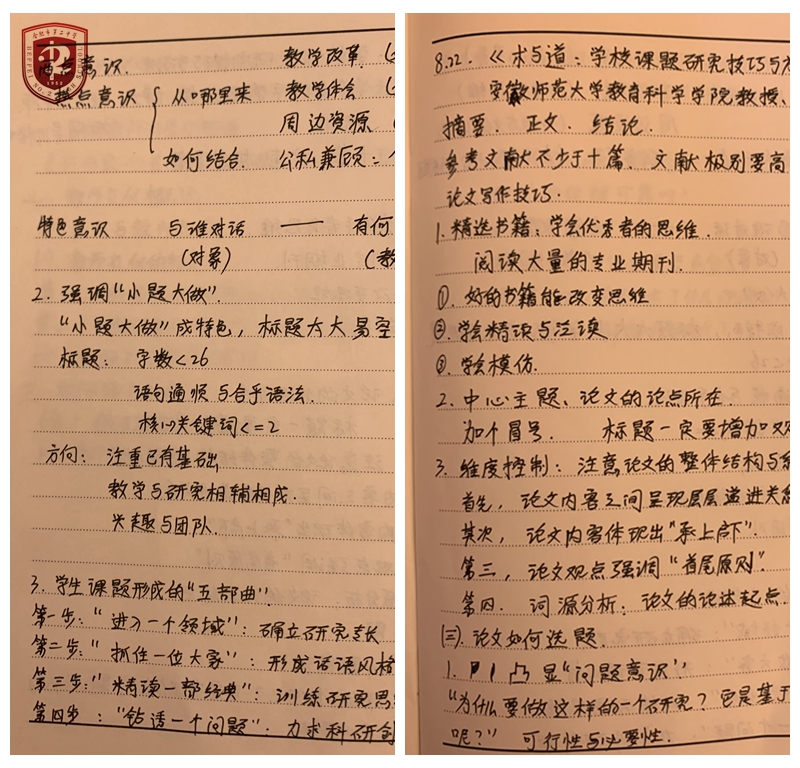 合肥市第二中学
意识.
教学改革
热点意识
从哪里来
教学体会
周边资源
如何结合.
公私兼顾:
特色意识
与谁对话
有何
(对象)
2. 强调“小题大做”.
“小题大做”成特色,标题大大易空
标题: 字数<26
语句通顺与合乎语法.
核心关键词<=2
方向: 注重已有基础
教学与研究相辅相成.
兴趣与团队.
3. 学生课题形成的“五部曲”.
第一步:“进入一个领域”: 确立研究专长
第二步:“抓住一位大家”: 形成话语风格
第三步:“精读一部经典”: 训练研究思
第四步:“钻透一个问题”: 力求科研创
8.22. 《术与道:学校课题研究技巧与
安徽师范大学教育科学学院教授、
摘要. 正文. 结论.
参考文献不少于十篇. 文献级别要高
论文写作技巧.
1. 精选书籍、学会优秀者的思维.
阅读大量的专业期刊.
①. 好的书籍能改变思维
②. 学会精读与泛读
③. 学会模仿.
2. 中心主题、论文的论点所在.
加个冒号. 标题一定要增加
3. 维度控制: 注意论文的整体结构与
首先,论文内容之间呈现层层递进关
其次,论文内容体现出“承上启下”.
第三,论文观点强调“首尾原则”.
第四. 词源分析:论文的论述起点.
(三). 论文如何选题.
1. 凸显“问题意识”:
“为什么要做这样的一个研究?它是基于
呢?” 可行性与必要性.